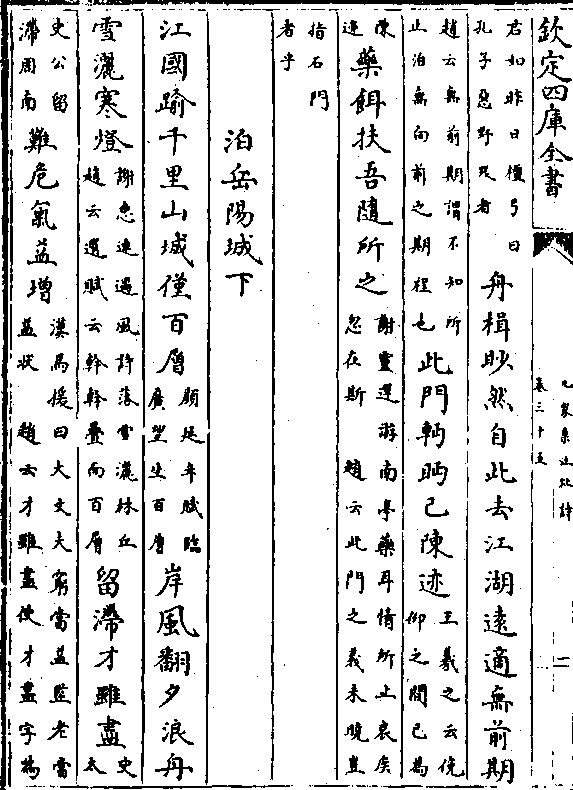 欽定四庫全書
九家集注杜詩
卷三十五
二
君如昨日檀弓曰
孔子惡野哭者
舟楫眇然自此去江湖遠適無前期
趙云無前期謂不知所
止泊無向前之期程也
此門轉眄已陳迹
王羲之云俛
仰之間已為
陳
迹
藥餌扶吾隨所之
謝靈運游南亭藥耳情所止衰疾
忽在斯 趙云此門之義未曉豈
指石門
者乎
泊岳陽城下
江國踰千里山城僅百層
顔延年賦臨
廣望坐百層
岸風翻夕浪舟
雪灑寒燈
謝惠連過風許落雪灑林丘
趙云選賦云幹幹疊向百層
留滯才雖盡
史
太
史公留
滯周南
難危氣益增
漢馬援曰大丈夫窮當益堅老當
益狀 趙云才雖盡使才盡字為